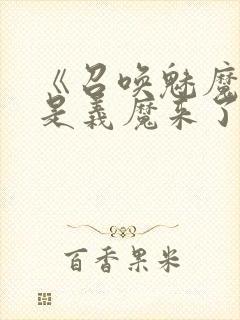 《召唤魅魔
是义魔来了
百香果米